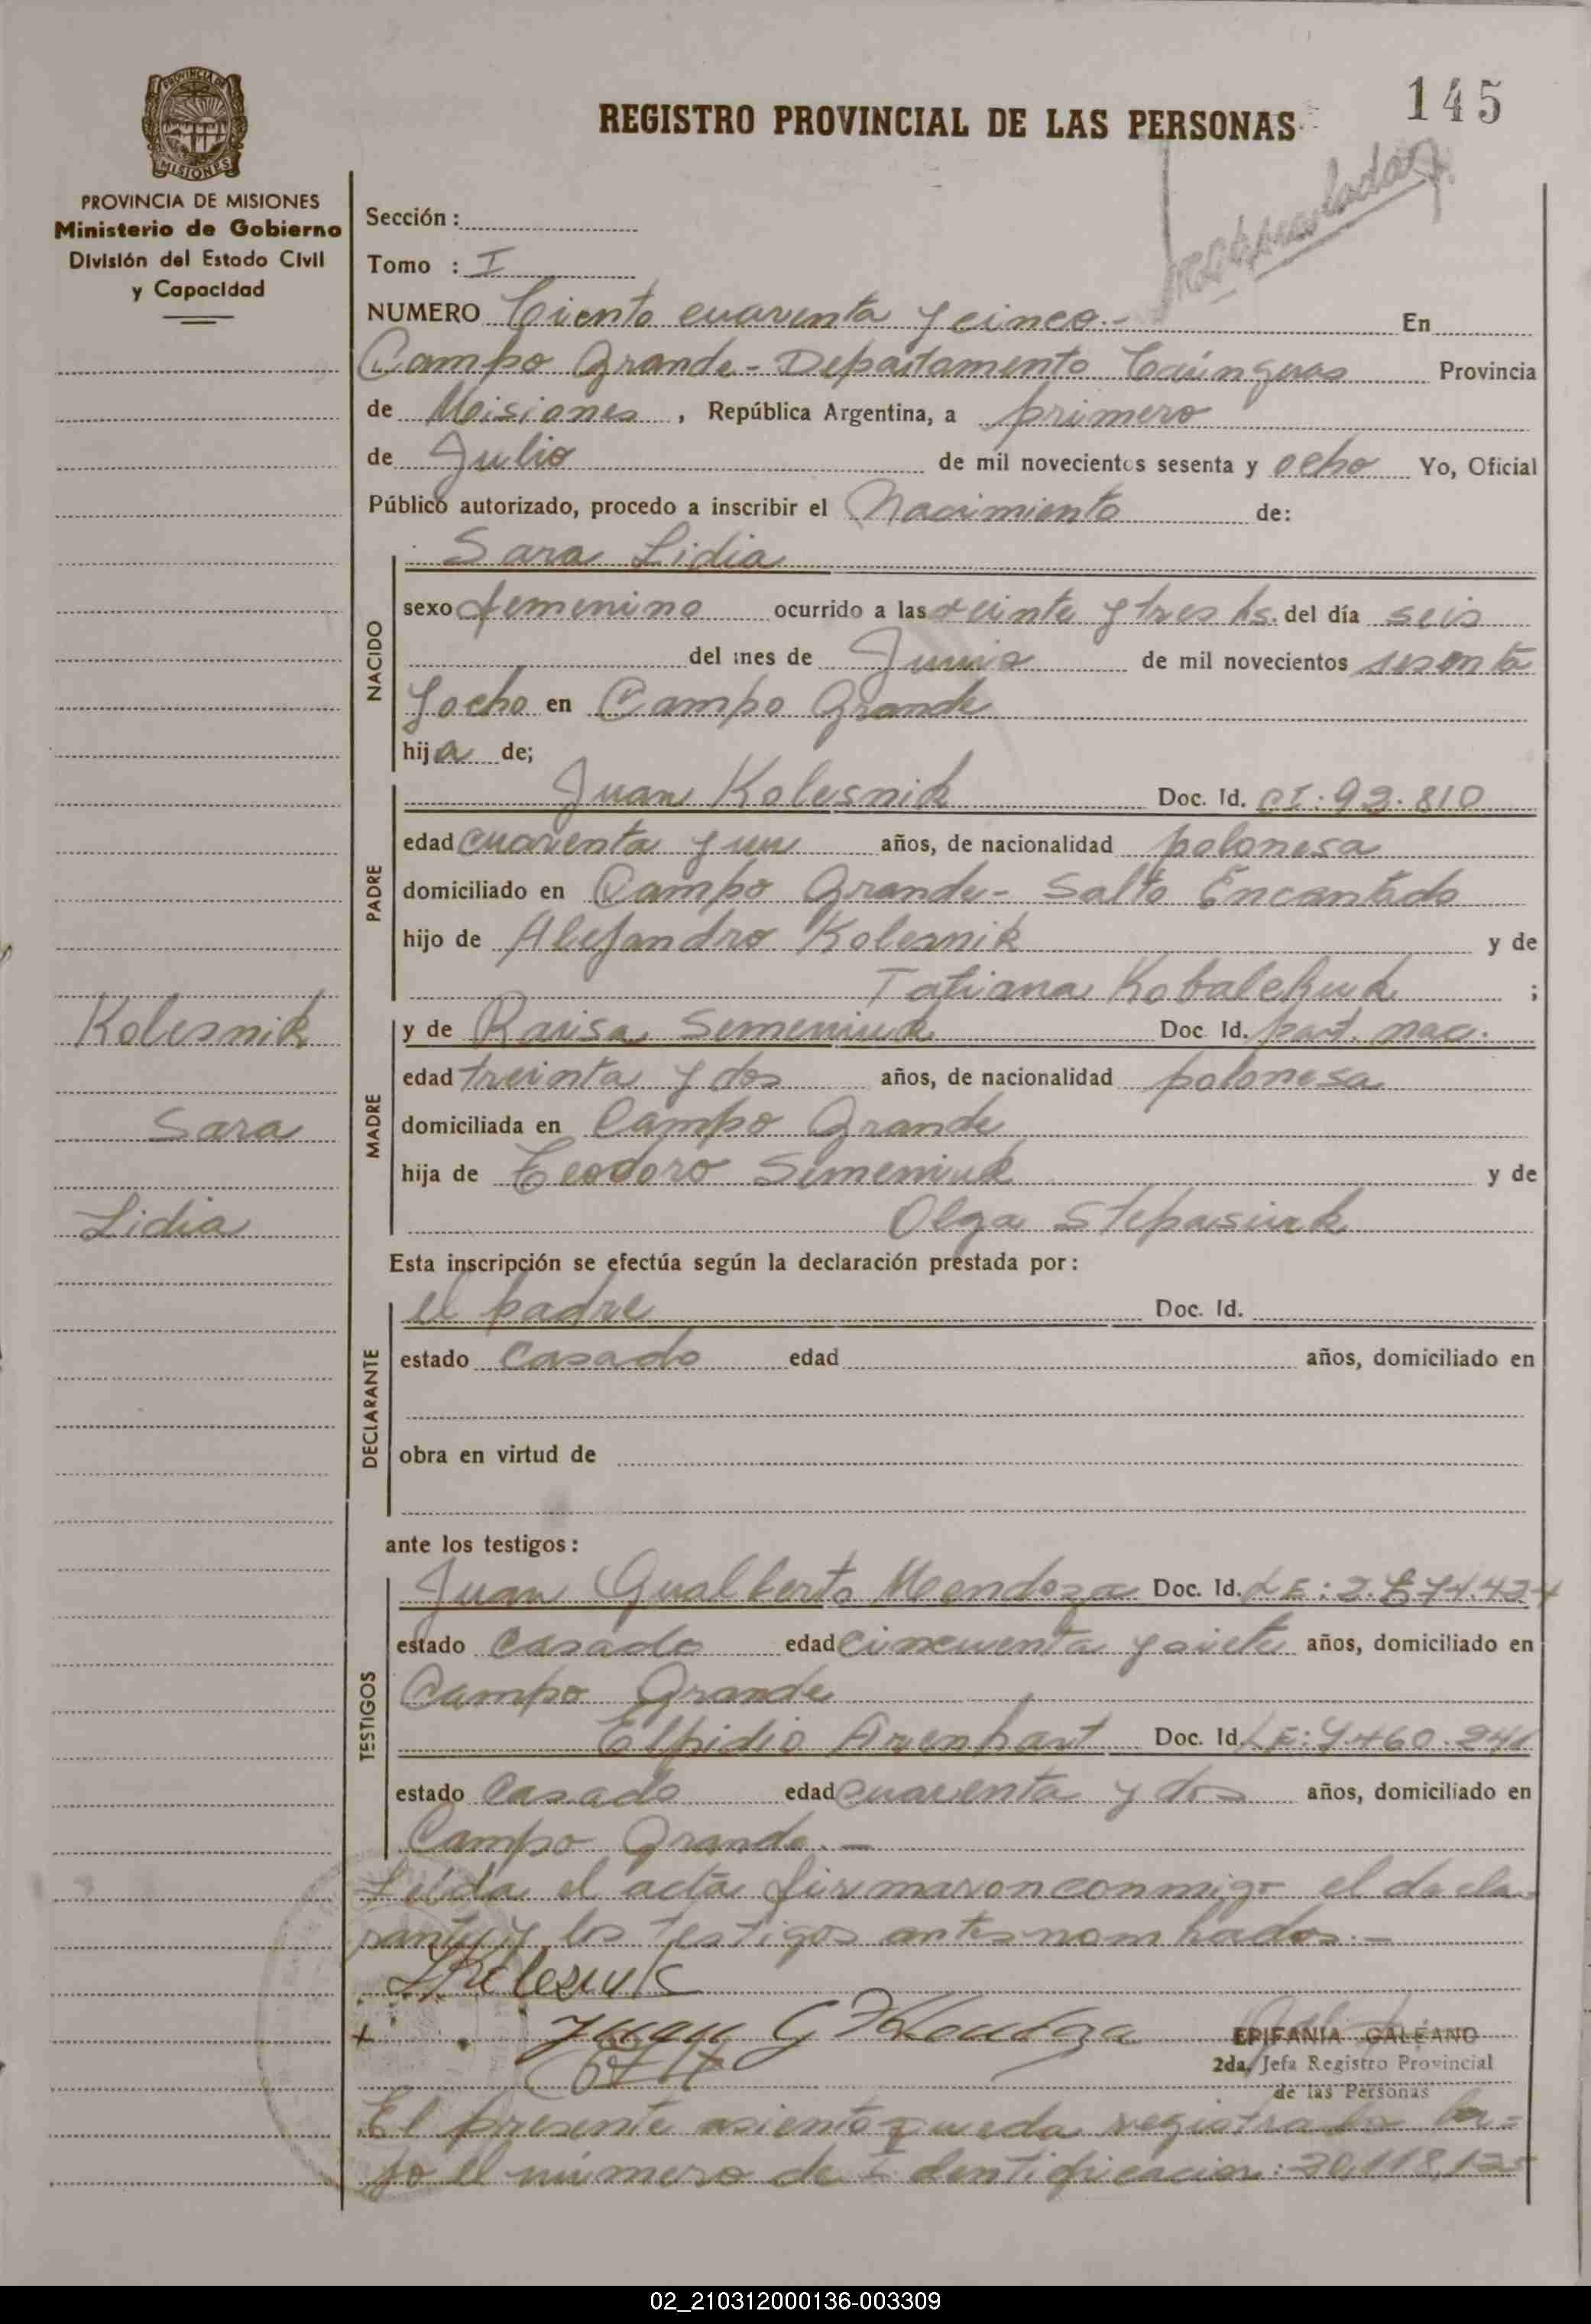 REGISTRO PROVINCIAL DE LAS PERSONAS
145
PROVINCIA DE MISIONES
PROVINCIA DE MISIONES
Ministerio de Gobierno
División del Estado Civil
y Capacidad
Sección :
Tomo : I
NUMERO Ciento cuarenta y cinco.- En
Campo Grande - Departamento Caínguas Provincia
de Misiones, República Argentina, a primero
de Julio de mil novecientos sesenta y ocho Yo, Oficial
Público autorizado, procedo a inscribir el Nacimiento de:
Sara Lidia
NACIDO
sexo femenino ocurrido a las veinte y tres hs. del día seis
del mes de Junio de mil novecientos sesenta
y ocho en Campo Grande
hija de;
PADRE
Juan Kolesnik Doc. Id. CI: 93.810
edad cuarenta y un años, de nacionalidad polonesa
domiciliado en Campo Grande - Salto Encantado
hijo de Alejandro Kolesnik y de
Tatiana Kobalchuk ;
Kolesnik
Sara
Lidia
MADRE
y de Raisa Semeniuk Doc. Id. part. nac.
edad treinta y dos años, de nacionalidad polonesa
domiciliada en Campo Grande
hija de Teodoro Semeniuk y de
Olga Stepasiuk
Esta inscripción se efectúa según la declaración prestada por :
DECLARANTE
el padre Doc. Id.
estado casado edad años, domiciliado en
obra en virtud de
ante los testigos :
TESTIGOS
Juan Gualberto Mendoza Doc. Id. LE:
estado casado edad cincuenta y siete años, domiciliado en
Campo Grande
Elpidio Arenhart Doc. Id. LE: 7.460.241
estado casado edad cuarenta y dos años, domiciliado en
Campo Grande. -
Leída el acta firmaron conmigo el decla
rante y los testigos antes nombrados. -
Kolesnik
Juan G Mendoza
EPIFANIA GALEANO
2da. Jefa Registro Provincial
de las Personas
El presente asiento queda registrado ba=
jo el número de Identificacion: 20,118,125
02_210312000136-003309